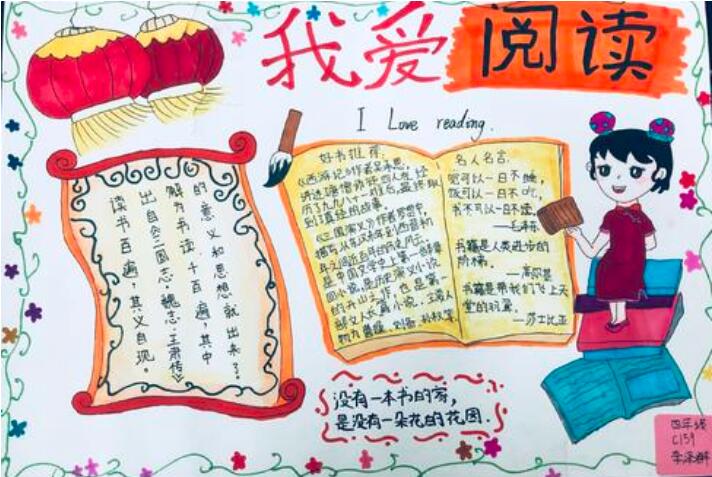 我爱阅读
I Love reading.
读书百遍,其义自现。
出自《三国志·魏志·王肃传》
解为书读十百遍,其中
的意义和思想就出来了。
好书推荐:
《西游记》作者吴承恩,
讲述唐僧师徒四人,经
历了九九八十一难后,最终取
到了真经的故事。
《三国演义》作者罗贯中,
描写从东汉末年到西晋初
年之间近百年的历史风云。
是中国文学史上第一部章
回小说,是历史演义小说
的开山之作,也是第一
部文人长篇小说,主要人
物为曹操、刘备、孙权等.
名人名言:
觉可以一日不睡,
饭可以一日不吃,
书不可以一日不读。
——毛泽东
书籍是人类进步的
阶梯。
——高尔基
书籍是带我们飞上天
堂的羽翼。
——莎士比亚
没有一本书的家,
是没有一朵花的花园.
四年级
C159